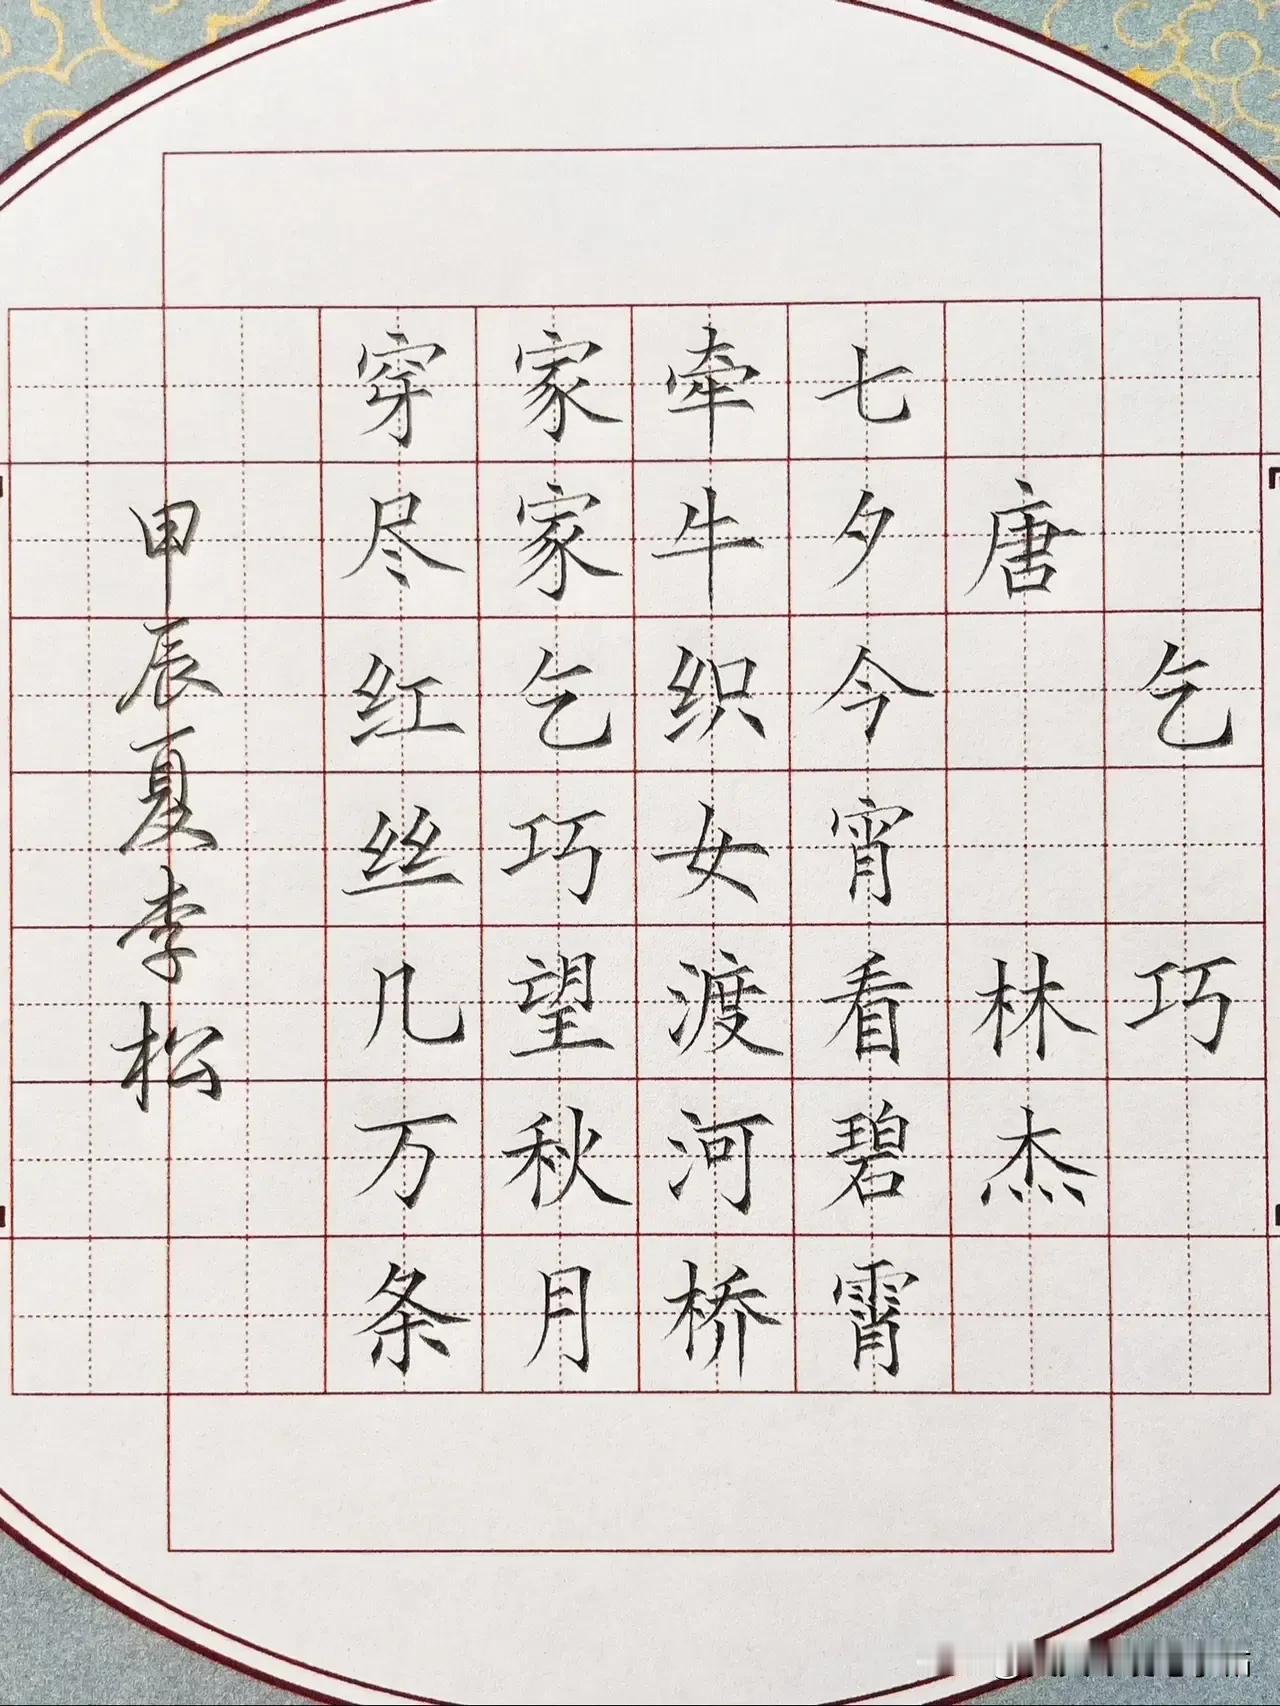 乞巧
唐 林杰
七夕今宵看碧霄
牵牛织女渡河桥
家家乞巧望秋月
穿尽红丝几万条
甲辰夏李松